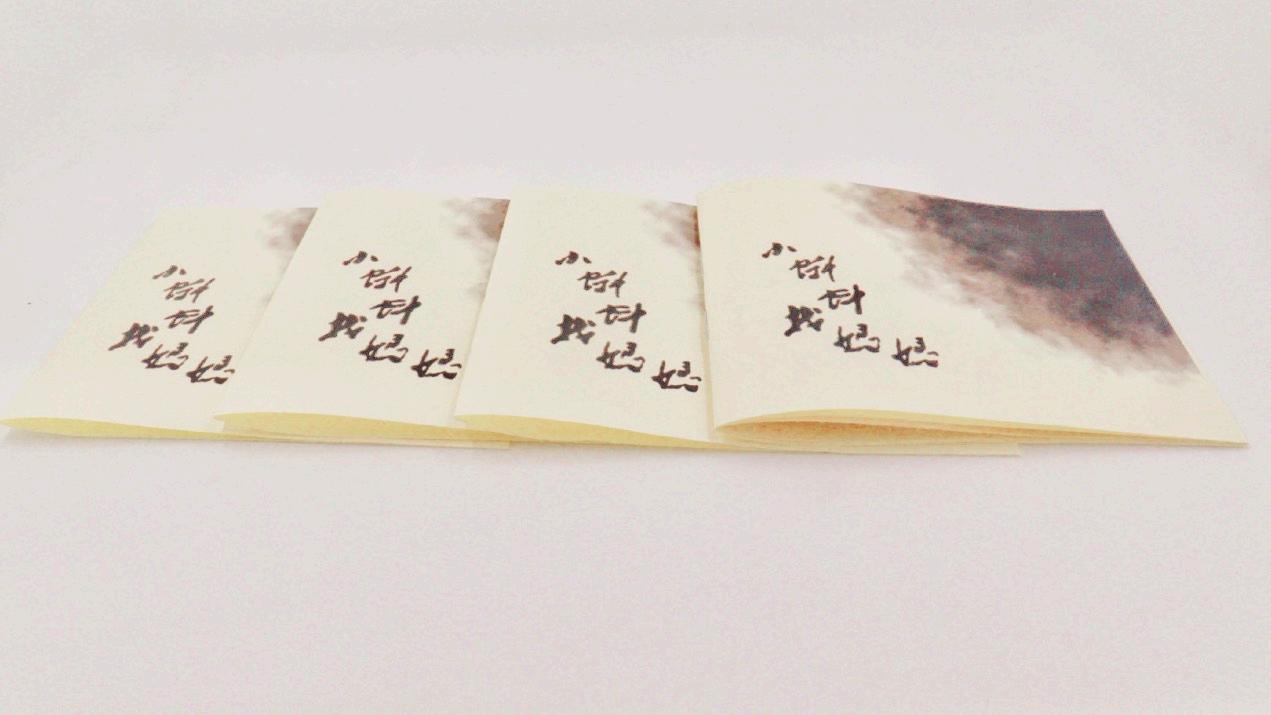 小蝌蚪找妈妈
小蝌蚪找妈妈
小蝌蚪找妈妈
小蝌蚪找妈妈